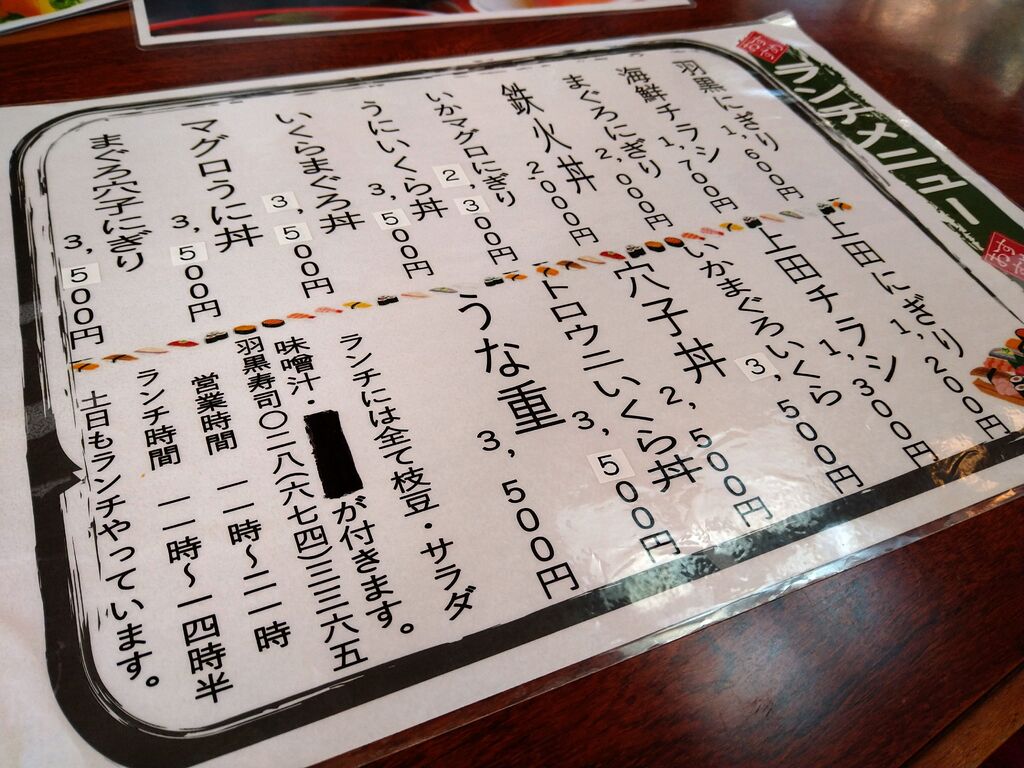 ランチメニュー
羽黒にぎり 1,600円
海鮮チラシ 1,700円
まぐろにぎり 2,000円
鉄火丼 2000円
いかマグロにぎり 2,300円
うにいくら丼 3,500円
いくらまぐろ丼 3,500円
マグロうに丼 3,500円
まぐろ穴子にぎり 3,500円
上田にぎり 1,200円
上田チラシ 1,300円
いかまぐろいくら 3,500円
穴子丼 2,500円
トロウニいくら丼 3,500円
うな重 3,500円
ランチには全て枝豆・サラダ
味噌汁・が付きます。
羽黒寿司〇二八(六七四)三三六五
営業時間 一一時~二一時
ランチ時間 一一時~一四時半
土日もランチやっています。